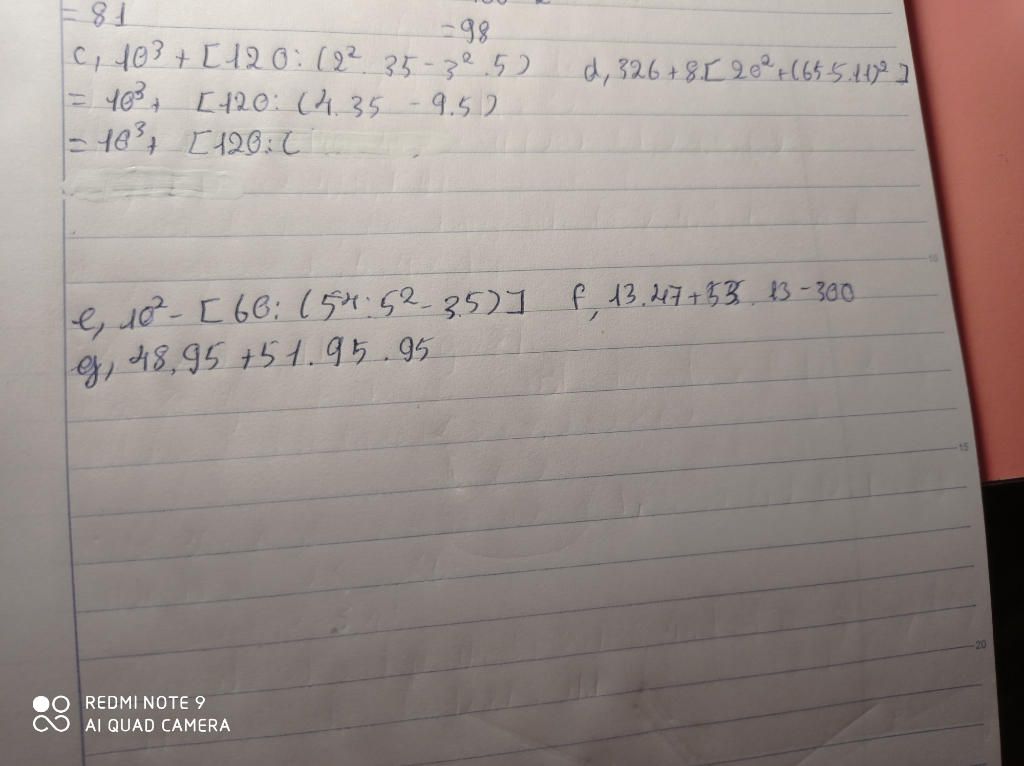 = 81
= 98
c, 10³ + [120 : (2² . 35 - 3² . 5)
d, 326 + 8.[20² + (65-5.11)²]
= 10³ + [120 : (4.35 - 9.5)
= 10³ + [120 : (
e, 10² - [60 : (5⁴ : 5² - 3.5)]
f, 13.47 + 53 . 13 - 300
g, 48,95 + 51 . 95 . 95
10
15
20
REDMI NOTE 9
AI QUAD CAMERA